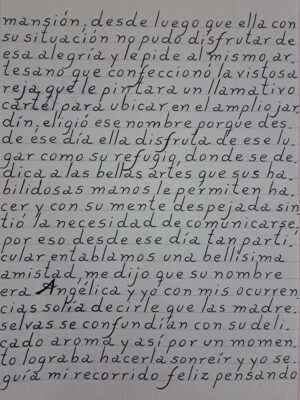 mansión, desde luego que ella con
su situación no pudo disfrutar de
esa alegría y le pide al mismo ar-
tesano que confeccionó la vistosa
reja que le pintara un llamativo
cartel para ubicar en el amplio jar-
dín, eligió ese nombre porque des-
de ese día ella disfruta de ese lu-
gar como su refugio, donde se de-
dica a las bellas artes que sus ha-
bilidosas manos le permiten ha-
cer y con su mente despejada sin-
tió la necesidad de comunicarse,
por eso desde ese día tan parti-
cular entablamos una bellísima
amistad, me dijo que su nombre
era Angélica y yo con mis ocurren-
cias solía decirle que las madre-
selvas se confundían con su deli-
cado aroma y así por un momen-
to lograba hacerla sonreír y yo se-
guía mi recorrido feliz pensando